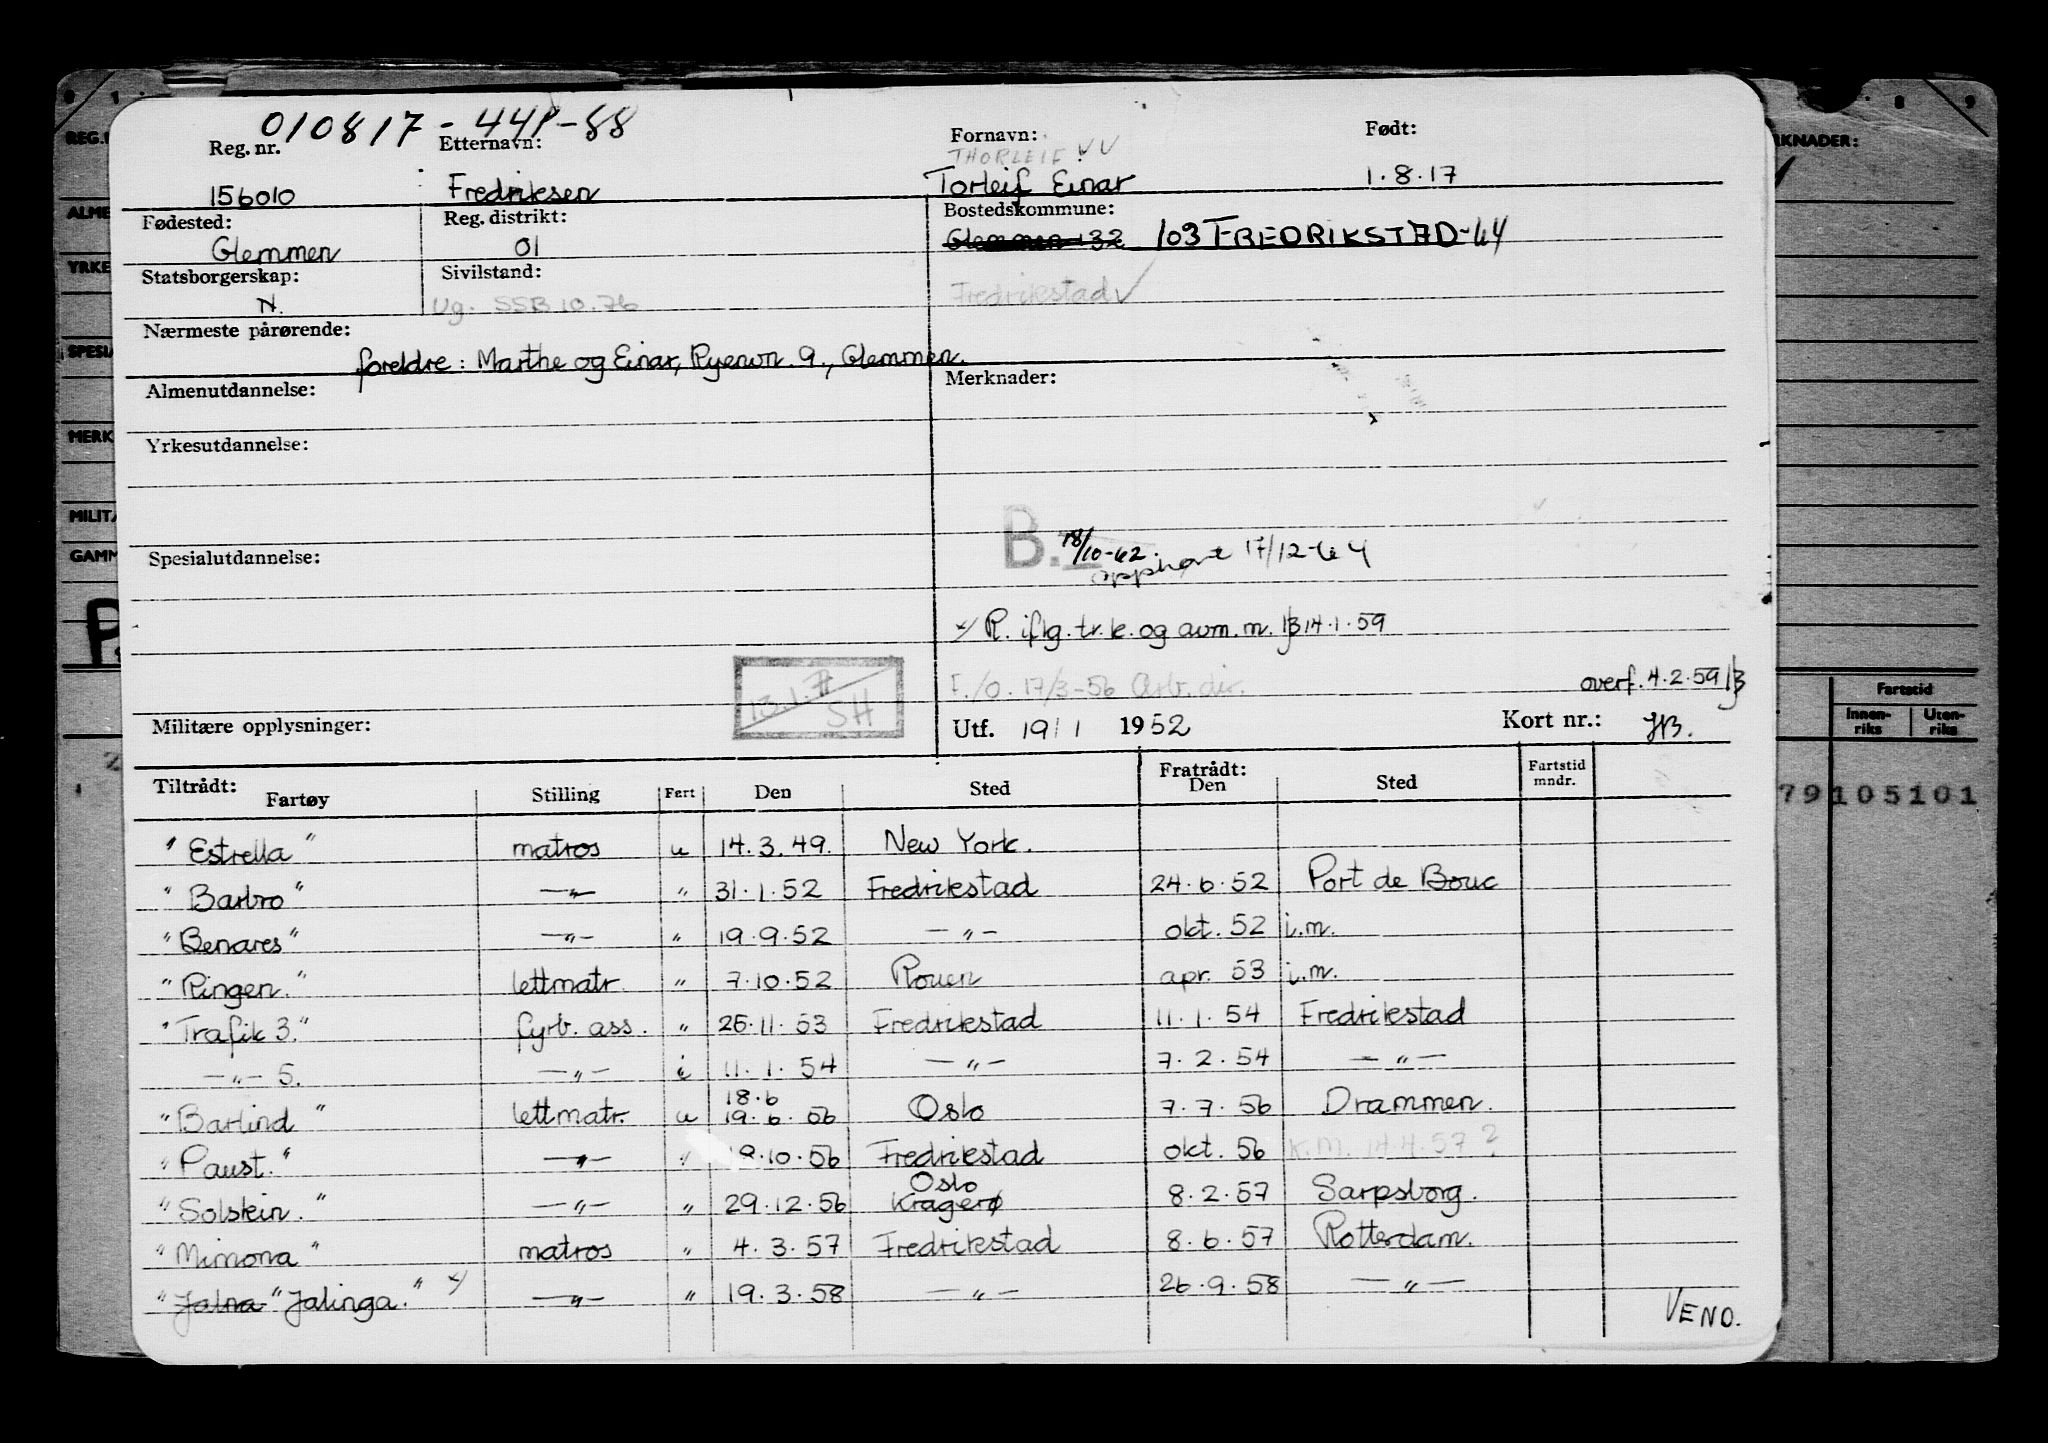 010817 - 441-88
Reg. nr. Etternavn: Fornavn: Født:
THORLEIF
156010 Fredriksen Torleif Einar 1.8.17
Fødested: Reg. distrikt: Bostedskommune:
Glemmen 01 Glemmen 32 103 FREDRIKSTAD-64
Statsborgerskap: Sivilstand:
N. Ug. SSB 10.76 Fredrikstad
Nærmeste pårørende:
foreldre: Marthe og Einar, Ryenvn. 9., Glemmen.
Almenutdannelse: Merknader:
Yrkesutdannelse:
B. 18/10-62. opphørt 17/12-64
Spesialutdannelse:
x/ R. iflg. tr.k. og avm. m. 14.1.59
13.1.77 SH
I./O. 17/3-56 Arb. dir.
overf. 4.2.59
Militære opplysninger: Utf. 19/1 1952 Kort nr.: HB.
Tiltrådt: Fratrådt: Fartstid
Fartøy Stilling Fart Den Sted Den Sted mndr.
"Estrella" matros u 14.3.49. New York.
"Barbro" —"— " 31.1.52 Fredrikstad 24.6.52 Port de Bouc
"Benares" —"— " 19.9.52 —"— okt. 52 i.m.
"Ringen." lettmatr. " 7.10.52 Rouen apr. 53 i.m.
"Trafik 3." fyrb. ass. " 25.11.53 Fredrikstad 11.1.54 Fredrikstad
—"— 5. —"— i 11.1.54 —"— 7.2.54 —"—
18.6
"Barlind" lettmatr. u 19.6.56 Oslo 7.7.56 Drammen.
"Paust." —"— " 18.10.56 Fredrikstad okt. 56 K.M. 14.4.57?
Oslo
"Solstein." —"— " 29.12.56 Kragerø 8.2.57 Sarpsborg.
"Mimona" matros " 4.3.57 Fredrikstad 8.6.57 Rotterdam.
"Jalna" "Jalinga." x/ —"— " 19.3.58 —"— 26.9.58 —"—
VEND.
KNADER:
Fartstid
Innen-riks Uten-riks
79105101